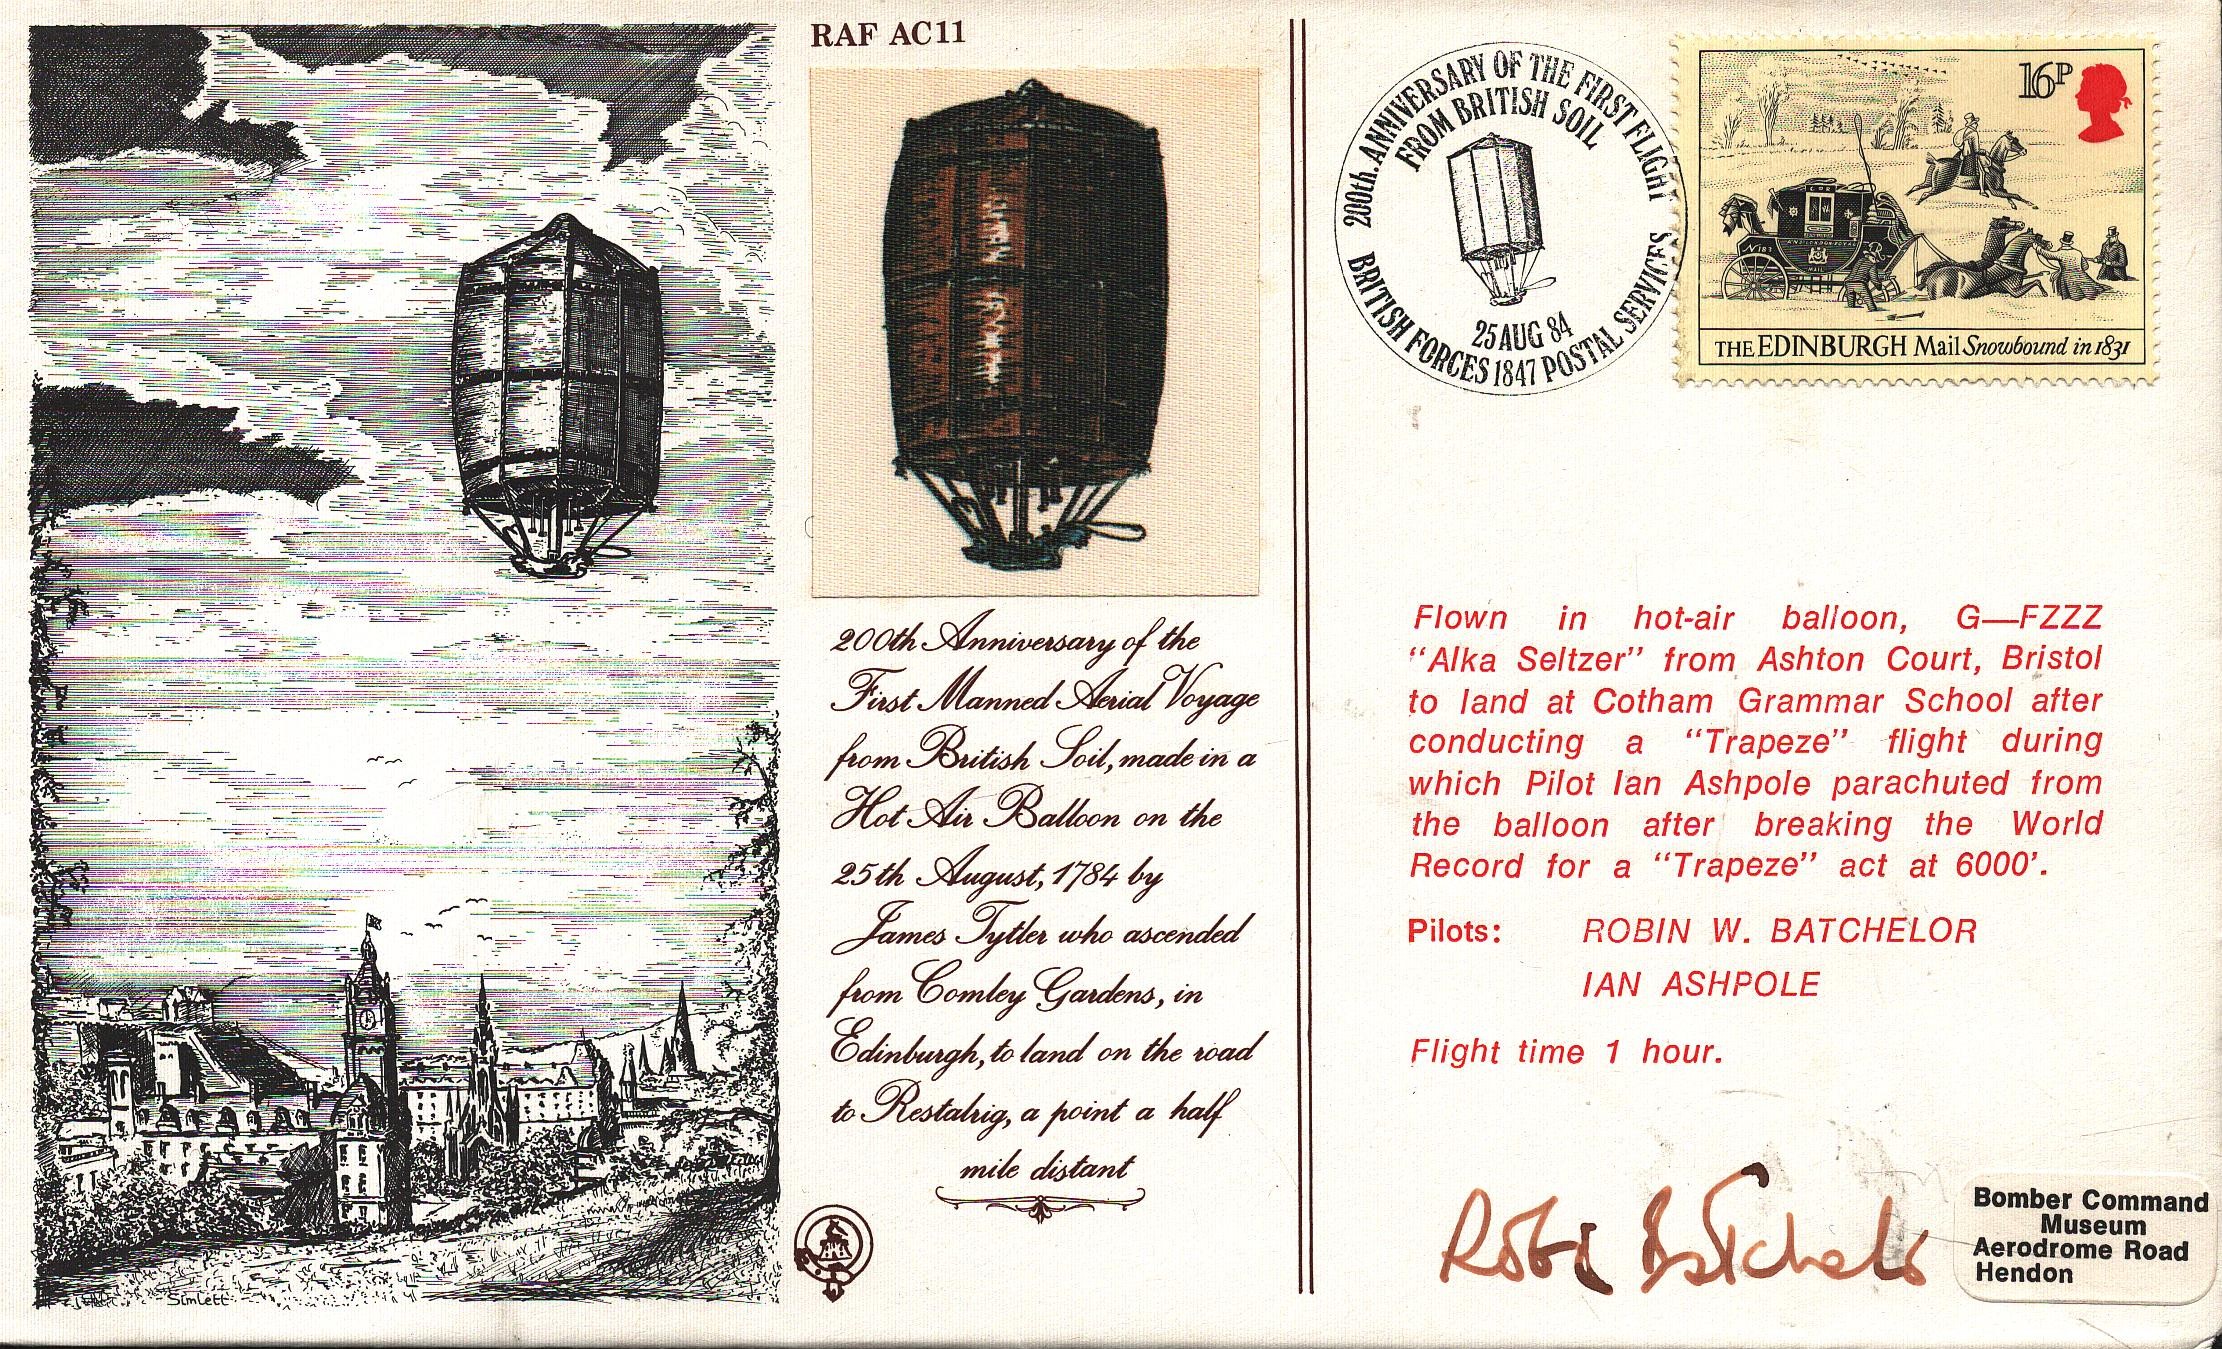 RAF AC11
200th Anniversary of the
First Manned Aerial Voyage
from British Soil, made in a
Hot Air Balloon on the
25th August, 1784 by
James Tytler who ascended
from Comley Gardens, in
Edinburgh, to land on the road
to Restalrig, a point a half
mile distant
Simlett
200th. ANNIVERSARY OF THE FIRST FLIGHT
FROM BRITISH SOIL
25 AUG 84
BRITISH FORCES 1847 POSTAL SERVICES
16P
THE EDINBURGH Mail Snowbound in 1831
Flown in hot-air balloon, G—FZZZ
“Alka Seltzer” from Ashton Court, Bristol
to land at Cotham Grammar School after
conducting a “Trapeze” flight during
which Pilot Ian Ashpole parachuted from
the balloon after breaking the World
Record for a “Trapeze” act at 6000’.
Pilots: ROBIN W. BATCHELOR
IAN ASHPOLE
Flight time 1 hour.
Robin Batchelor
Bomber Command
Museum
Aerodrome Road
Hendon